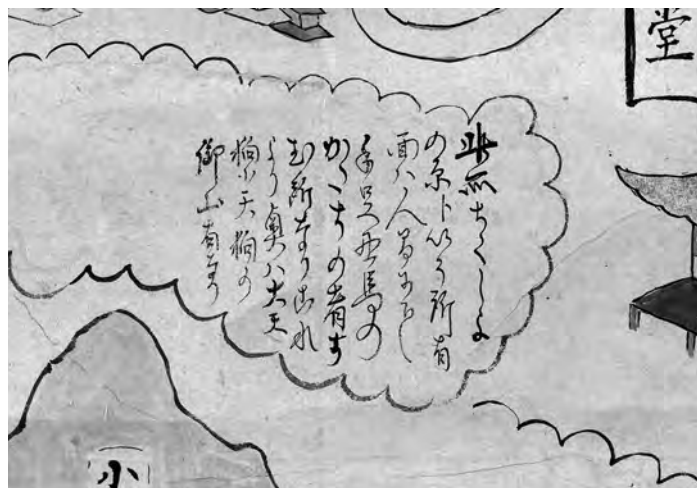 此所ちくしよ
の原といふ所有
面ハ人間にして
手足牛馬の
かたちの者す
む所なり是れ
より奥ハ大天
狗小天狗の
御山有なり
堂
小